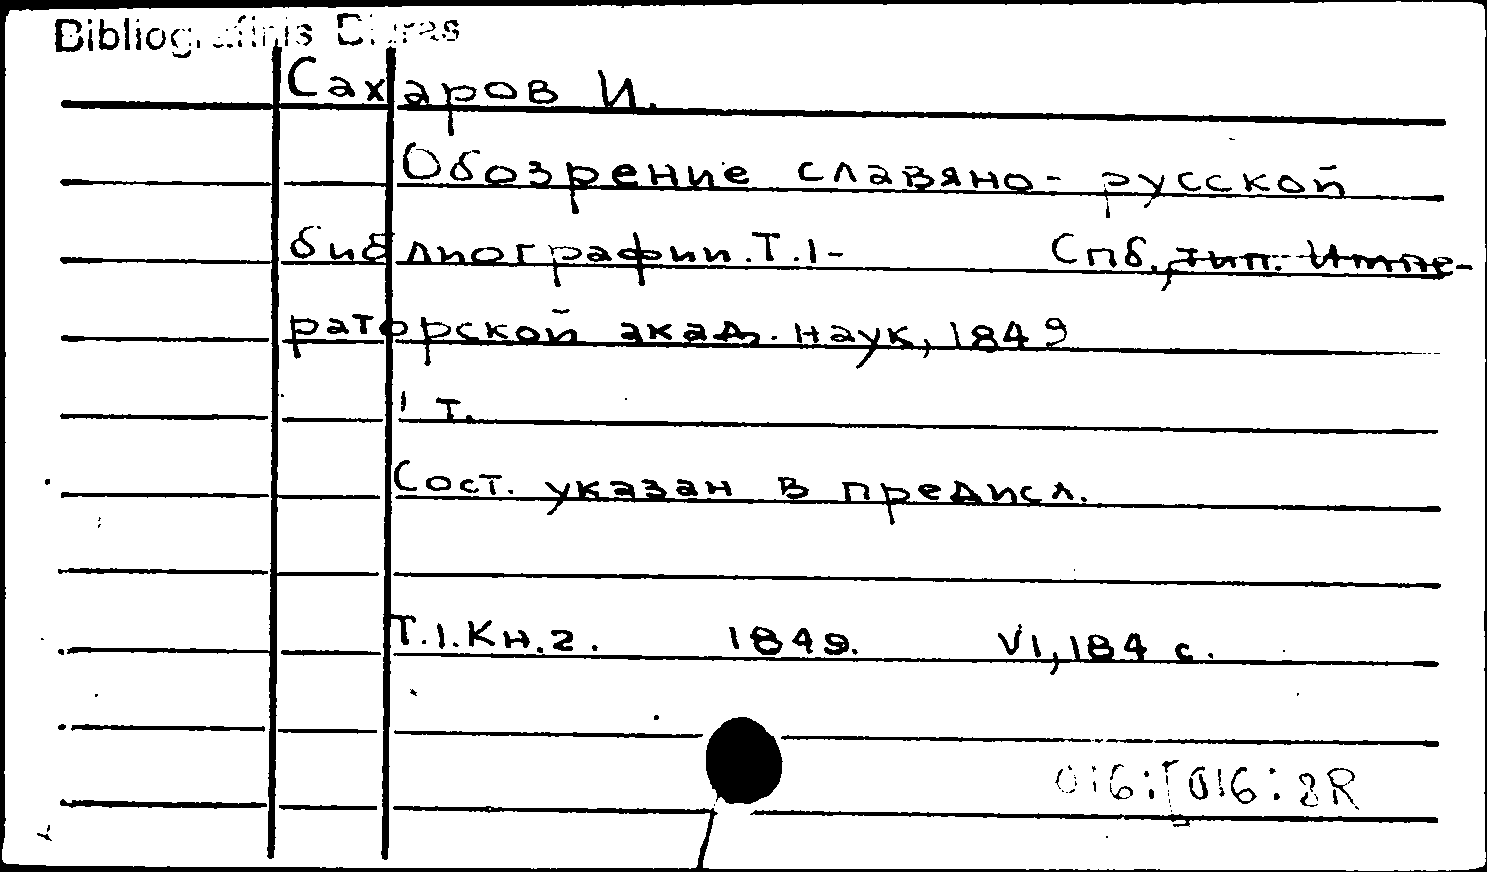 Bibliografinis Biuras
Сахаров И.
Обозрение славяно-русской
библиографии. Т.1- Спб., тип. Импе-
раторской акад. наук, 1849
1 т.
Сост. указан в предисл.
Т.1. Кн.2. 1849. VI, 184 с.
016:[016:8R